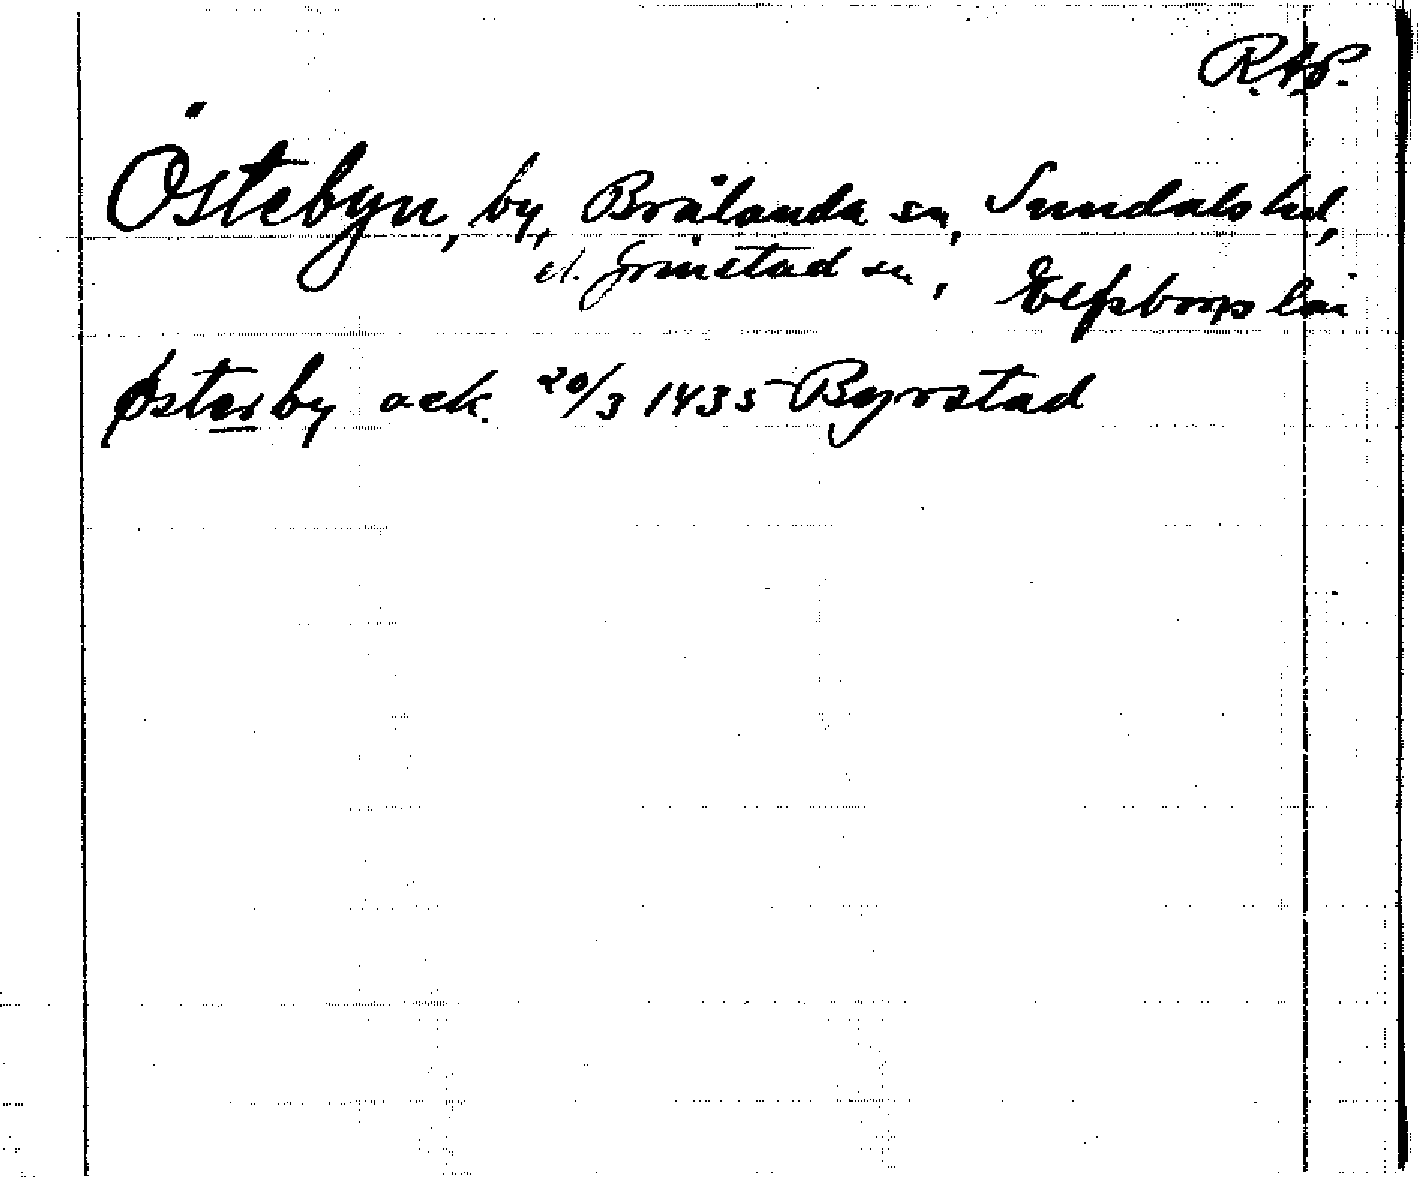 R.Ap.
Östebyn, by, Brålanda sn, Sundals hd,
el. Grinstad sn, Elfsborgs län
Østerby ack. 20/3 1435 Byrstad